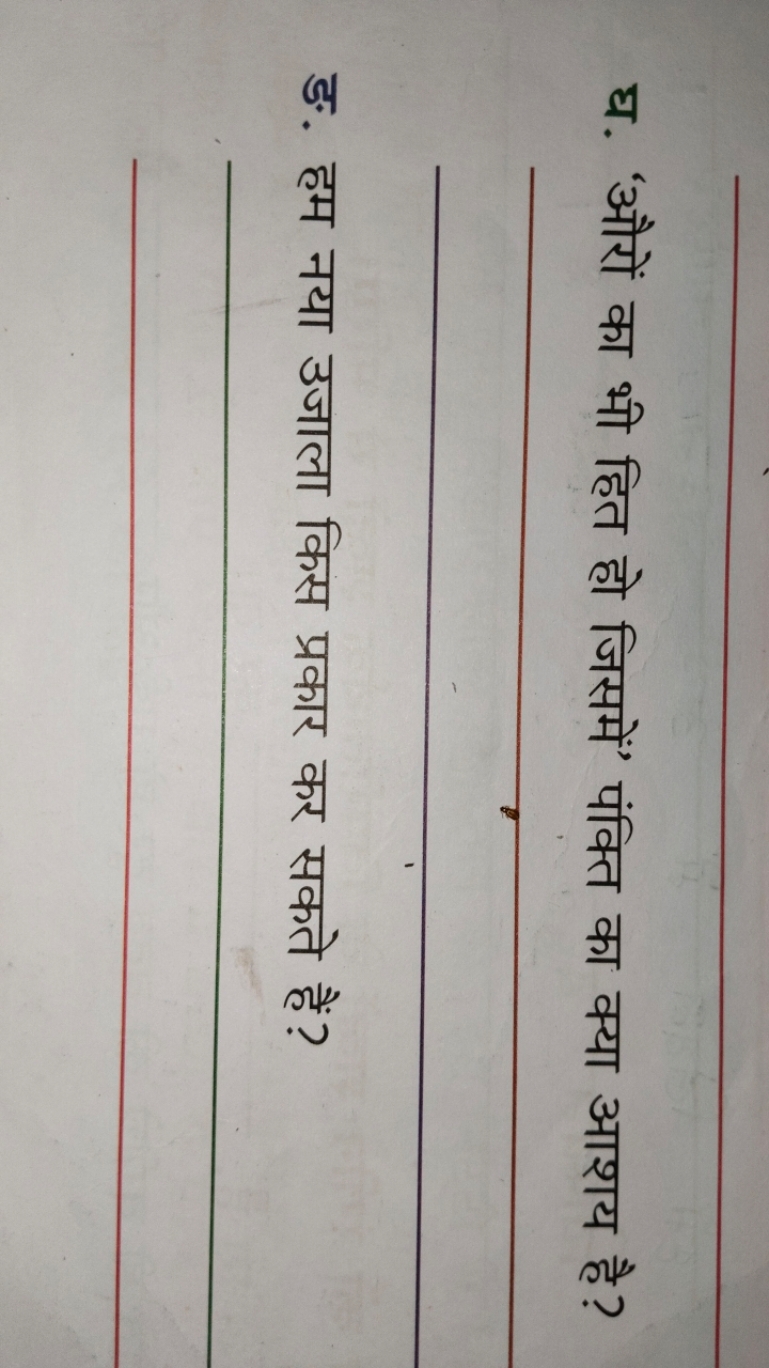 घ. ‘औरों का भी हित हो जिसमें’ पंक्ति का क्या आशय है?
ङ. हम नया उजाला किस प्रकार कर सकते हैं?